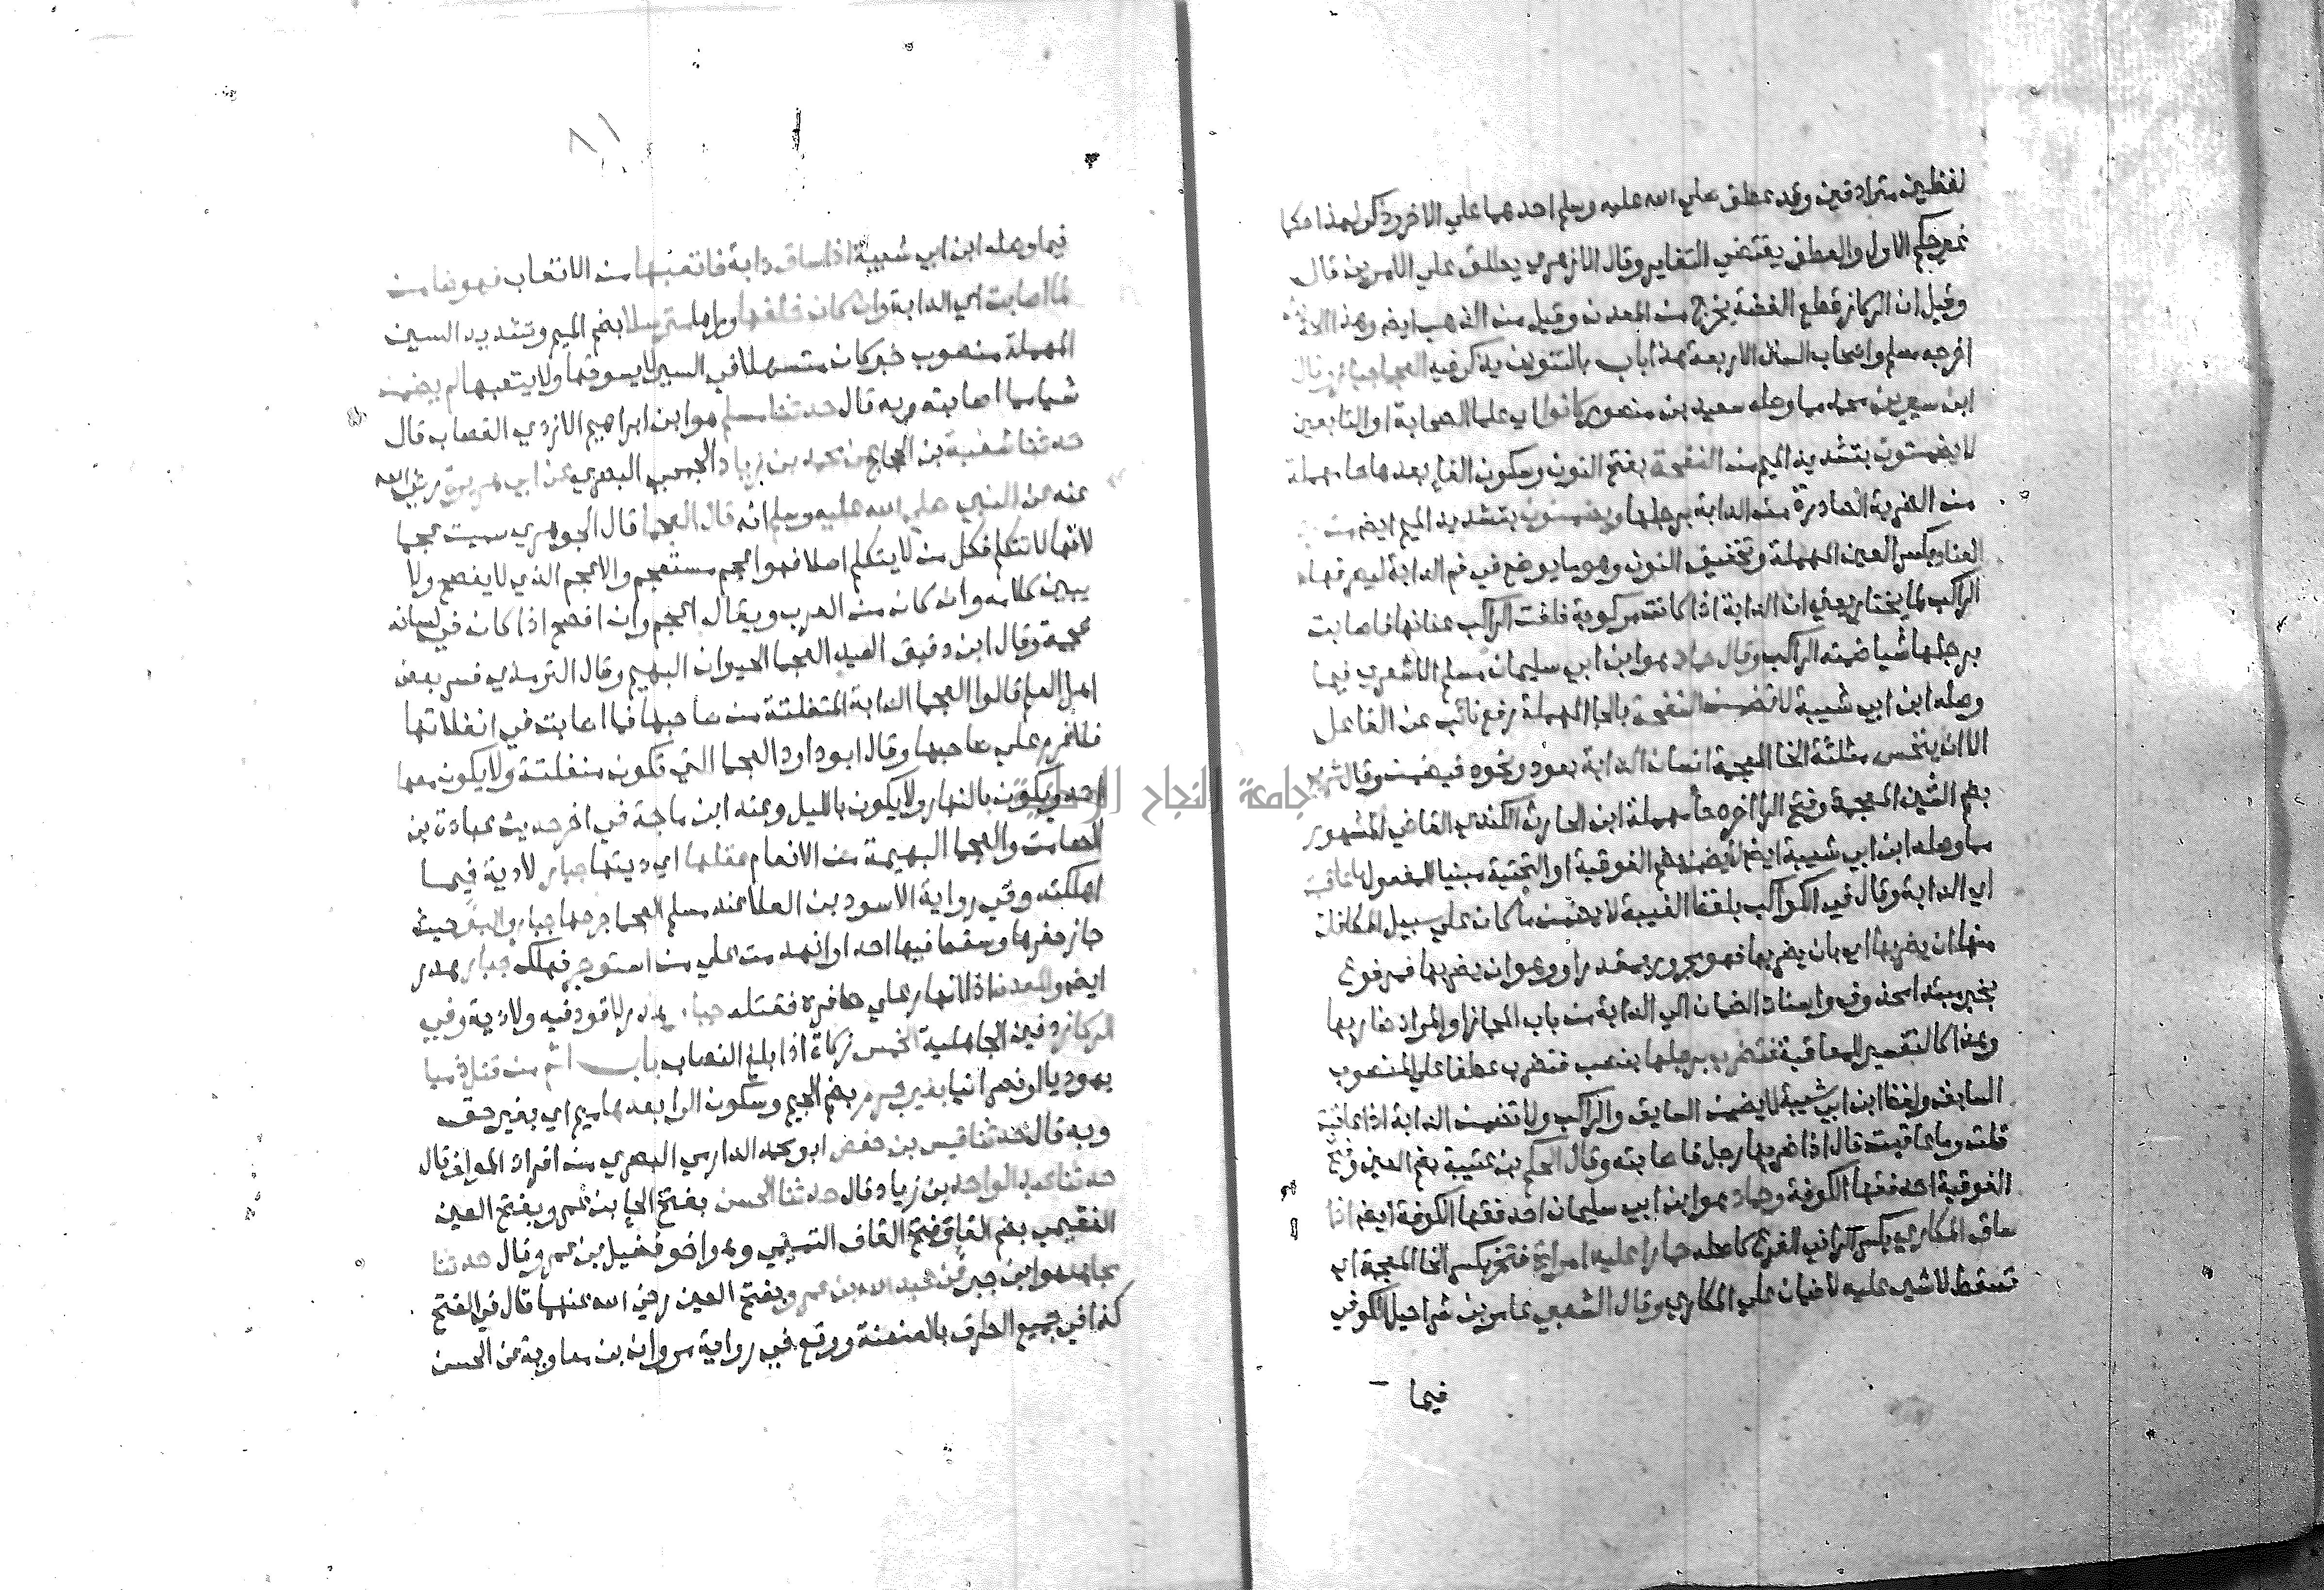 لفظين مترادفين وقد عطف صلي الله عليه وسلم احدهما علي الاخر وذكر لهذا حكما
غير حكم الاول والعطف يقتضي التغاير وقال الازهري يطلق علي الامرين قال
وقيل ان الركاز قطع الفضة يخرج من المعدن وقيل من الذهب ايضا وهذا
اخرجه مسلم واصحاب السنن الاربعة هذا باب بالتنوين يذكر فيه العجما جبار وقال
ابن سيرين محمد مما وصله سعيد بن منصور كانوا اي علما الصحابة او التابعين
لا يضمنون بتشديد الميم من النفحة بفتح النون وسكون الفا بعدها حا مهملة
من الضربة الصادرة من الدابة برجلها ويضمنون بتشديد الميم ايضا من
العنان بكسر العين المهملة وتخفيف النون وهو ما يوضع في فم الدابة ليصرفها
الراكب لما يختار يعني ان الدابة اذا كانت مركوبة فلفت الراكب عنانها فاصابت
برجلها شيا ضمنه الراكب وقال حماد هو ابن ابي سليمان مسلم الاشعري فيما
وصله ابن ابي شيبة لا تضمن النفحة بالحا المهملة رفع نائب عن الفاعل
الا ان ينخس مثلثة الخا المعجمة انسان الدابة بعود ونحوه فيضمن وقال شريح
بضم الشين المعجمة وفتح الرا اخره حا مهملة ابن الحارث الكندي القاضي المشهور
مما وصله ابن ابي شيبة ايضا لا يضمن بضم الفوقية او التحتية مبنيا للمفعول ما عاقبت
اي الدابة وقال في الكواكب بلفظ الغيبة لا يضمن ما كان علي سبيل المكافاة
منها ان يضربها اي بان يضربها فهو مجرور بمقدر او وهو ان يضربها فمرفوع
بخبر مبتدا محذوف واسناد الضمان الي الدابة من باب المجاز او المراد ضاربها
وهذا كالتفسير للمعاقبة فتضرب برجلها بنصب فتضرب عطفا علي المنصوب
السابق ولفظ ابن ابي شيبة لا يضمن السايق والراكب ولا تضمن الدابة اذا عاقبت
قلت وما عاقبت قال اذا ضربها رجل فاصابته وقال الحكم بن عتيبة بضم العين وفتح
الفوقية احد فقها الكوفة وحماد هو ابن ابي سليمان احد فقها الكوفة ايضا اذا
ساق المكاري بكسر الرا في الفرع كاصله حمارا عليه امراة فتخر بكسر الخا المعجمة اي
تسقط لا شي عليه لا ضمان علي المكاري وقال الشعبي عامر بن شراحيل الكوفي
فيما
٨١
فيما وصله ابن ابي شيبة اذا ساق دابة فاتعبها من الاتعاب فهو ضامن
لما اصابت اي الدابة وان كان خلفها وراها مترسلا بضم الميم وتشديد السين
المهملة منصوب خبر كان متسهلا في السير لا يسوقها ولا يتعبها لم يضمن
شيا مما اصابته وبه قال حدثنا مسلم هو ابن ابراهيم الازدي القصاب قال
حدثنا شعبة بن الحجاج عن محمد بن زياد الجمحي البصري عن ابي هريرة رضي الله
عنه عن النبي صلي الله عليه وسلم انه قال العجما قال الجوهري سميت عجما
لانها لا تتكلم فكل من لا يتكلم اصلا فهو اعجم مستعجم والاعجم الذي لا يفصح ولا
يبين كلامه وان كان من العرب ويقال اعجم وان افصح اذا كان في لسانه
عجمة وقال ابن دقيق العيد العجما الحيوان البهيم وقال الترمذي فسر بعض
اهل العلم قالوا العجما الدابة المنفلتة من صاحبها فما اصابت في انفلاتها
فلا غرم علي صاحبها وقال ابو داود العجما التي تكون منفلتة ولا يكون معها
احد ويكون بالنهار ولا يكون بالليل وعند ابن ماجة في اخر حديث عبادة بن
الصامت والعجما البهيمة من الانعام عقلها اي ديتها جبار لا دية فيما
اهلكته وفي رواية الاسود بن العلا عند مسلم العجما جرحها جبار والبير حيث
جاز حفرها وسقط فيها احد او انهدمت علي من استوجر فهلك جبار هدر
ايضا والمعدن اذا انهار علي حافره فقتله جبار هدر لا قود فيه ولا دية وفي
الركاز دفين الجاهلية الخمس زكاة اذا بلغ النصاب باب اثم من قتل ذميا
يهوديا او نصرانيا بغير جرم بضم الجيم وسكون الرا بعدها ميم اي بغير حق
وبه قال حدثنا قيس بن حفص ابو محمد الدارمي البصري من افراد المولف قال
حدثنا عبد الواحد بن زياد قال حدثنا الحسن بفتح الحا بن عمرو بفتح العين
الفقيمي بضم الفا وفتح القاف التميمي وهو اخو فضيل بن عمرو قال حدثنا
مجاهد هو ابن جبر عن عبد الله بن عمرو بفتح العين رضي الله عنهما قال في الفتح
كذا في جميع الطرق بالعنعنة ووقع في رواية مروان بن معاوية عن الحسن
جامعة النجاح الوطنية